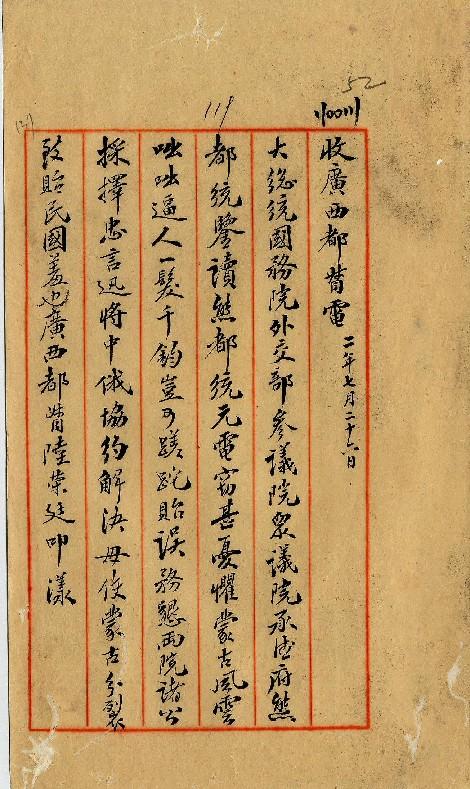 52
119
收廣西都督電 二年七月二十六日
大總統國務院外交部參議院眾議院承德府熊
都統鑒讀熊都統元電窃甚憂懼蒙古風雲
咄咄逼人一髮千鈞豈可蹉跎貽誤務懇兩院諸公
採擇忠言迅將中俄協約解決毋使蒙古分裂
致貽民國羞也廣西都督陸榮廷叩漾